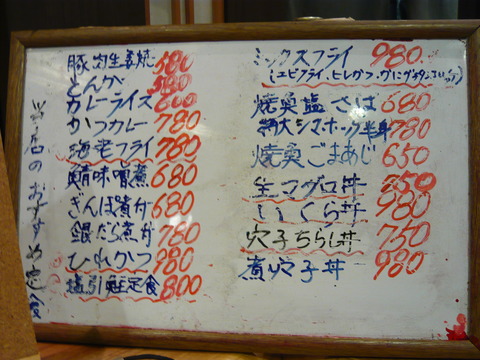 当店のおすすめ定食
豚肉生姜焼 580
とんかつ 580
カレーライス 600
かつカレー 780
海老フライ 780
鯖味噌煮 680
ぎんぽ煮付 680
銀だら煮付 780
ひれかつ 980
塩引鮭定食 800
ミックスフライ 980
(エビフライ、ヒレかつ、カニ
焼魚塩さば 680
特大シマホッケ半身 780
焼魚ごまあじ 650
生マグロ丼 750
いくら丼 980
穴子ちらし丼 750
煮穴子丼 980